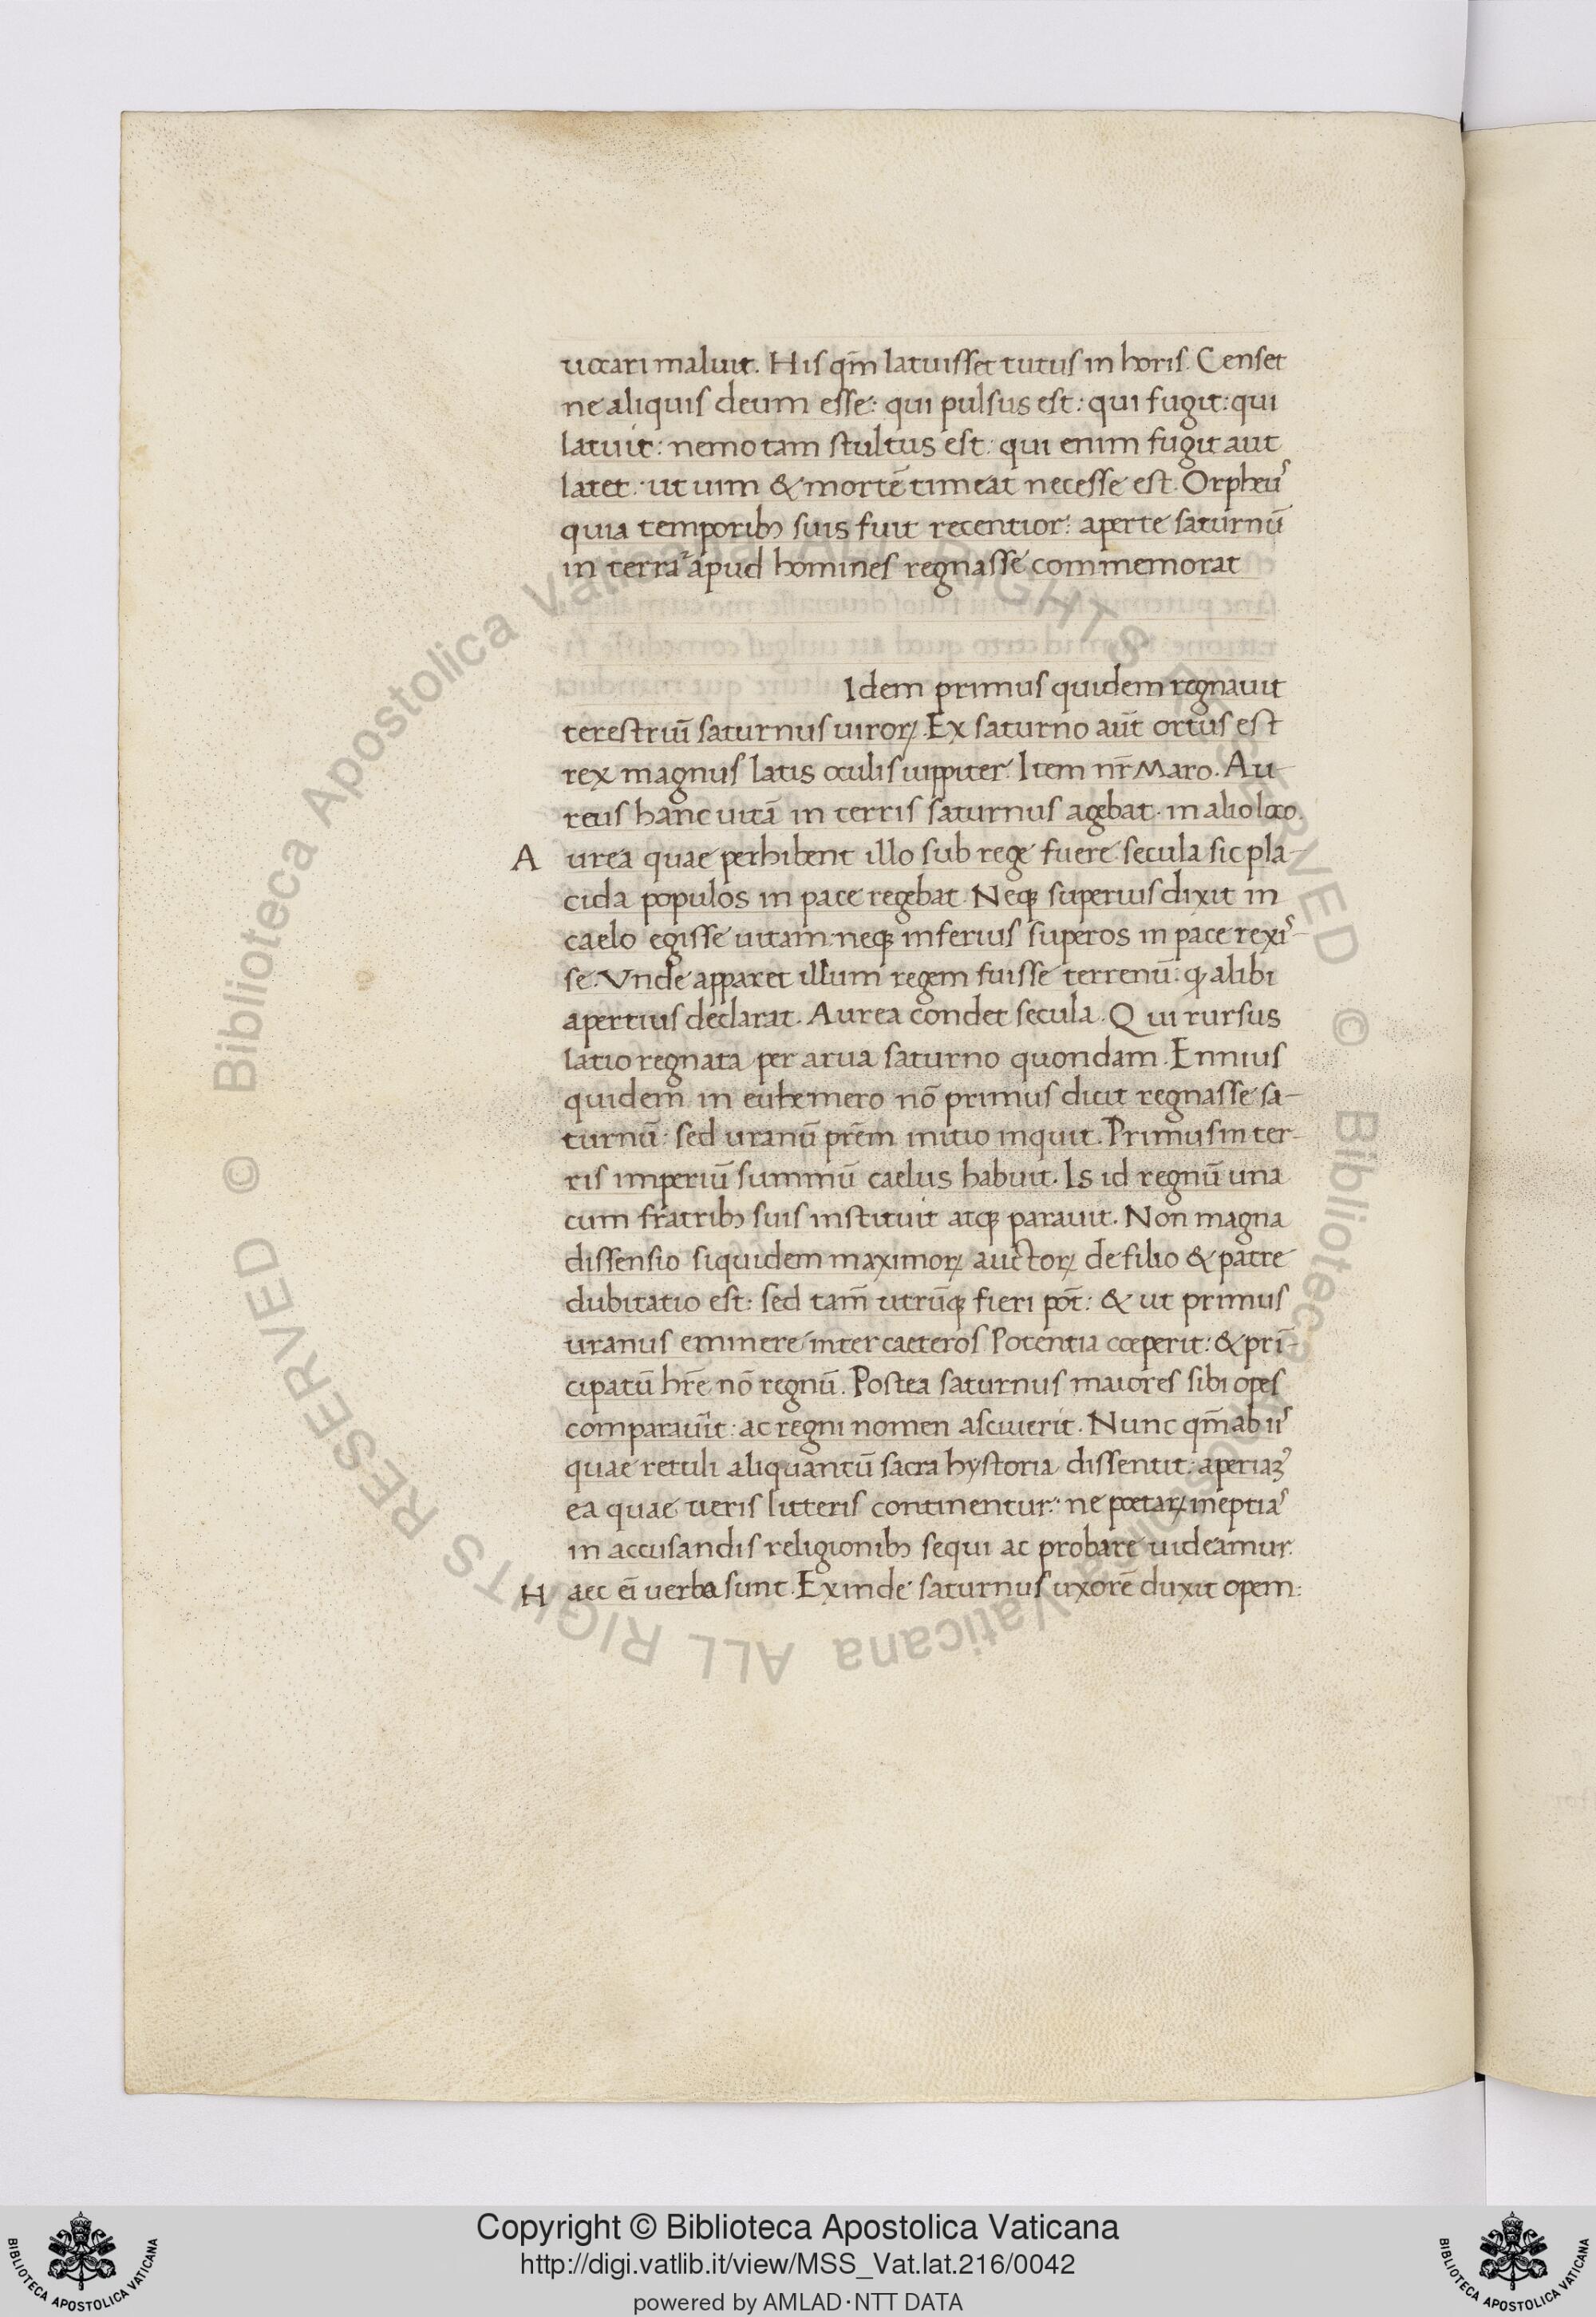 uocari maluit. His qm̄ latuisset tutus in horis. Censet
ne aliquis deum esse: qui pulsus est: qui fugit: qui
latuit: nemo tam stultus est: qui enim fugit aut
latet: ut uim & mortē timeat necesse est. Orpheus
quia temporibꝫ suis fuit recentior: aperte saturnū
in terra apud homines regnasse commemorat
Idem primus quidem regnauit
terestriū saturnus uiroꝝ. Ex saturno aūt ortus est
rex magnus latis oculis iuppiter. Item nr̄ Maro. Au-
reus hanc uitā in terris saturnus agebat. in alio loco.
Aurea quae perhibent illo sub rege fuere secula sic pla-
cida populos in pace regebat. Neqꝫ superius dixit in
caelo egisse uitam: neqꝫ inferius superos in pace rexis-
se. Vnde apparet illum regem fuisse terrenū: ꝙ alibi
apertius declarat. Aurea condet secula. Qui rursus
latio regnata per arua saturno quondam. Ennius
quidem in euhemero nō primus dicit regnasse sa-
turnū: sed uranū prēm initio inquit. Primus in ter-
ris imperiū summū caelus habuit. Is id regnū una
cum fratribꝫ suis instituit atqꝫ parauit. Non magna
dissensio siquidem maximoꝝ auctoꝝ de filio & patre
dubitatio est: sed tam̄ utrūqꝫ fieri pōt: & ut primus
uranus eminere inter caeteros Potentia coeperit: & prī-
cipatū hr̄e nō regnū. Postea saturnus maiores sibi opes
comparauīt: ac regni nomen asciuerit. Nunc qm̄ ab iis
quae retuli aliquantū sacra hystoria dissentit: aperiaꝫ
ea quae ueris litteris continentur: ne poetaꝝ ineptias
in accusandis religionibꝫ sequi ac probare uideamur.
Haec eī uerba sunt. Exinde saturnus uxorē duxit opem:
Copyright © Biblioteca Apostolica Vaticana
http://digi.vatlib.it/view/MSS_Vat.lat.216/0042
powered by AMLAD·NTT DATA
BIBLIOTECA APOSTOLICA VATICANA
BIBLIOTECA APOSTOLICA VATICANA
© Biblioteca Apostolica Vaticana ALL RIGHTS RESERVED © Biblioteca Apostolica Vaticana ALL RIGHTS RESERVED